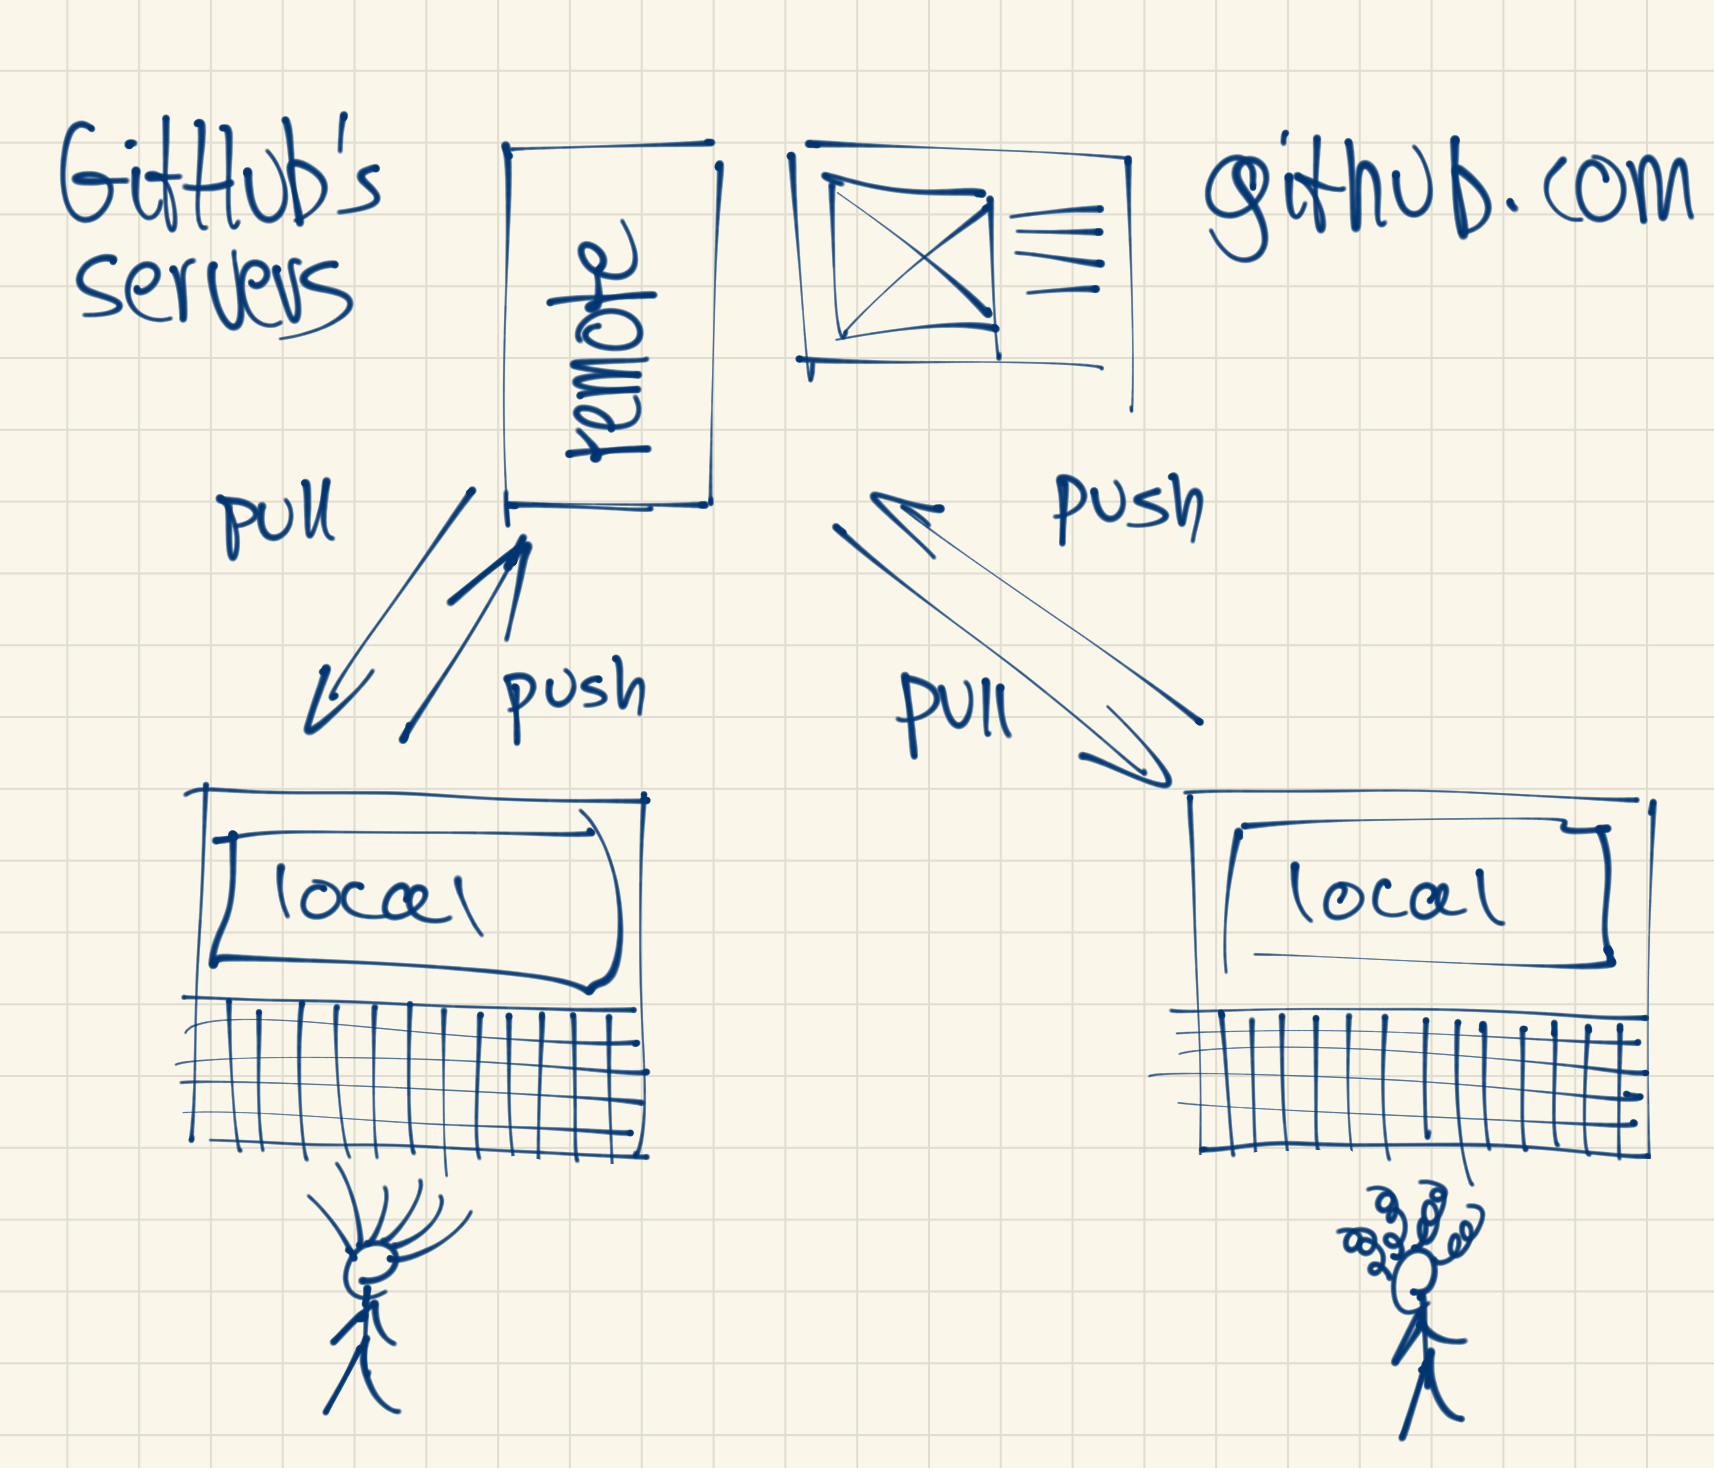 GitHub's
servers
remote
github.com
pull
push
push
pull
local
local